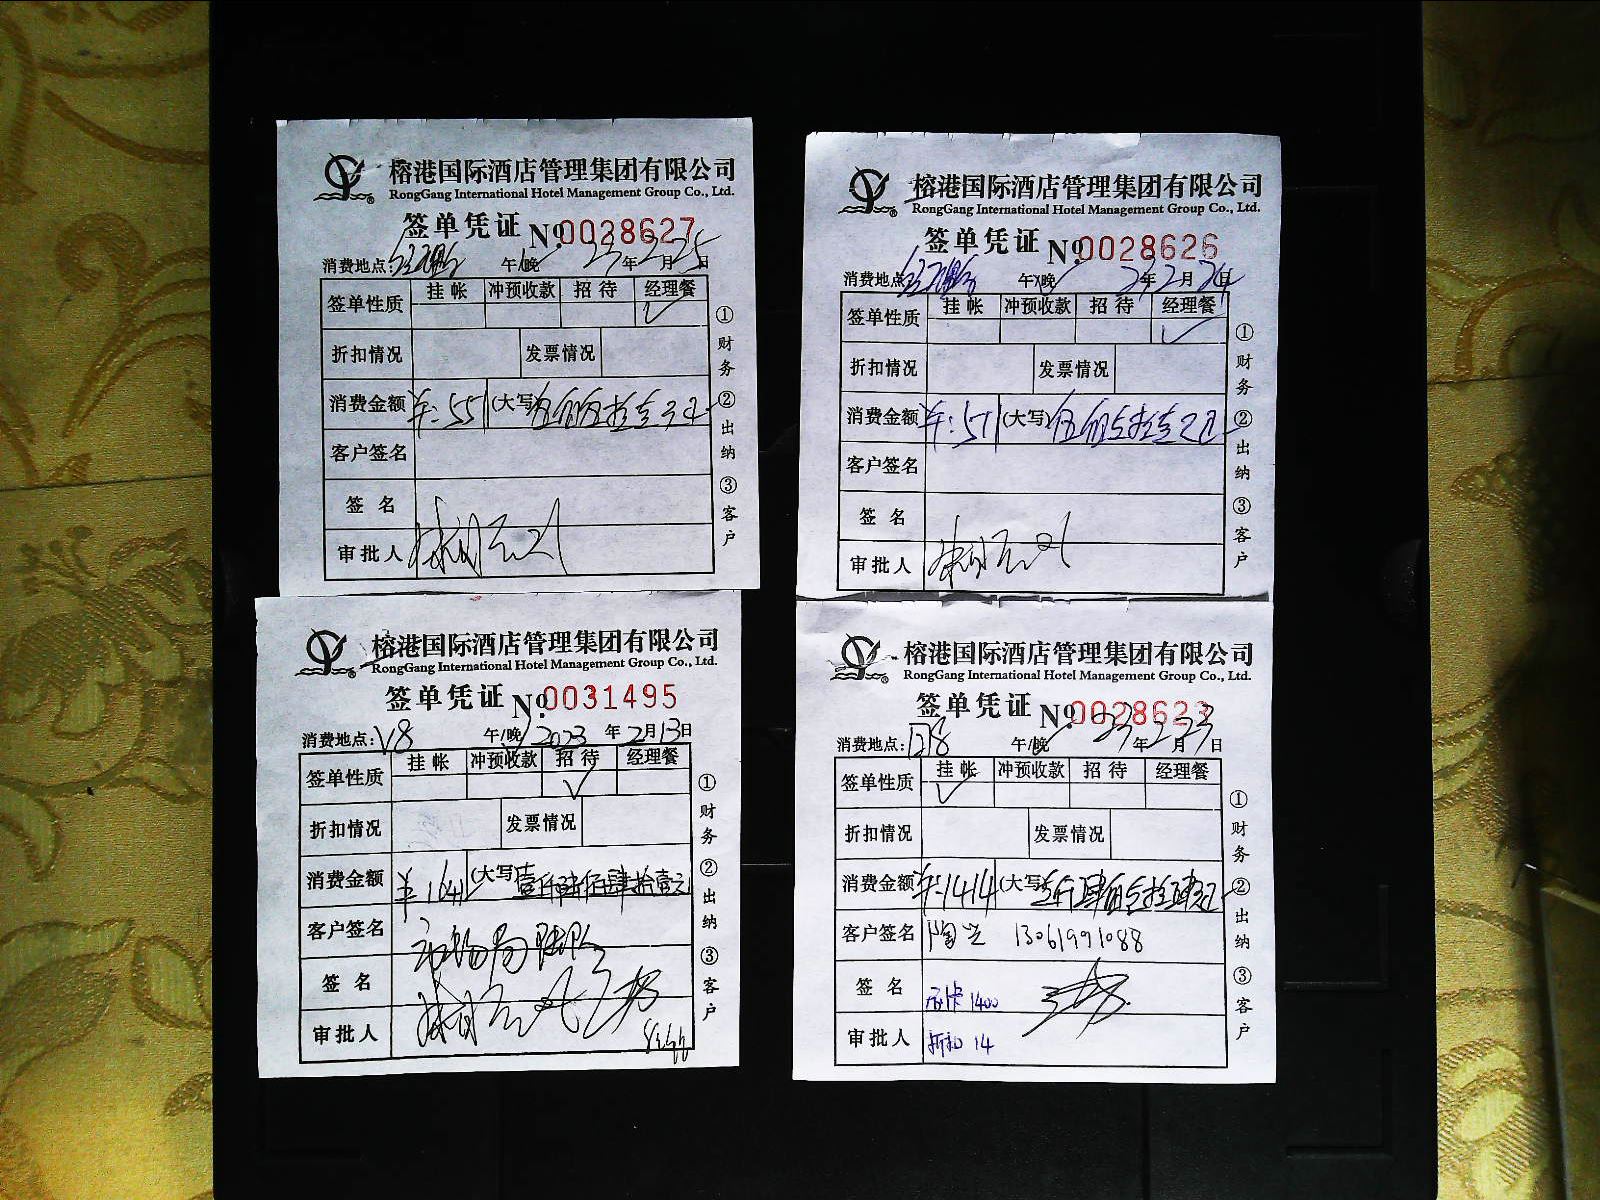 榕港国际酒店管理集团有限公司
RongGang International Hotel Management Group Co., Ltd.
签单凭证 No.0028627
消费地点: 午/晚 23年2月25日
签单性质 挂帐 冲预收款 招待 经理餐
✓
折扣情况 发票情况
消费金额 ¥:551 (大写)伍佰伍拾壹元
客户签名
签名
审批人
①财务 ②出纳 ③客户
榕港国际酒店管理集团有限公司
RongGang International Hotel Management Group Co., Ltd.
签单凭证 No.0028626
消费地点: 午/晚 年2月24日
签单性质 挂帐 冲预收款 招待 经理餐
✓
折扣情况 发票情况
消费金额 ¥:511 (大写)伍佰壹拾壹元
客户签名
签名
审批人
①财务 ②出纳 ③客户
榕港国际酒店管理集团有限公司
RongGang International Hotel Management Group Co., Ltd.
签单凭证 No.0031495
消费地点:V8 午/晚 2023年2月13日
签单性质 挂帐 冲预收款 招待 经理餐
✓
折扣情况 发票情况
消费金额 ¥1641 (大写)壹仟陆佰肆拾壹元
客户签名
签名
审批人
①财务 ②出纳 ③客户
榕港国际酒店管理集团有限公司
RongGang International Hotel Management Group Co., Ltd.
签单凭证 No.0028623
消费地点: 午/晚 23年2月23日
签单性质 挂帐 冲预收款 招待 经理餐
✓
折扣情况 发票情况
消费金额 ¥:1414 (大写)壹仟肆佰壹拾肆元
客户签名 陶 13061991088
签名 1400
审批人 折扣 14
①财务 ②出纳 ③客户